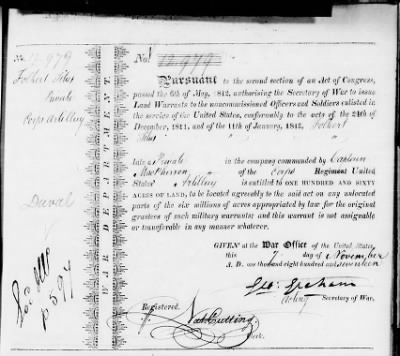 No. 12,979
Tolbert Silas
Private
Corps Artillery
Duval
WAR DEPARTMENT.
No. 12,979
PURSUANT to the second section of an Act of Congress,
passed the 6th of May, 1812, authorising the Secretary of War to issue
Land Warrants to the noncommissioned Officers and Soldiers enlisted in
the service of the United States, conformably to the acts of the 24th of
December, 1811, and of the 11th of January, 1812, Tolbert
Silas
late a Private in the company commanded by Captain
MacPherson of the Corps Regiment United
States' Artillery is entitled to ONE HUNDRED AND SIXTY
ACRES OF LAND, to be located agreeably to the said act on any unlocated
parts of the six millions of acres appropriated by law for the original
grantees of such military warrants; and this warrant is not assignable
or transferable in any manner whatever.
GIVEN at the War Office of the United States,
this 7 day of November
A. D. one thousand eight hundred and seventeen
Geo: Graham
Acting Secretary of War.
Registered.
Nat Cutting
Clerk.
p 594